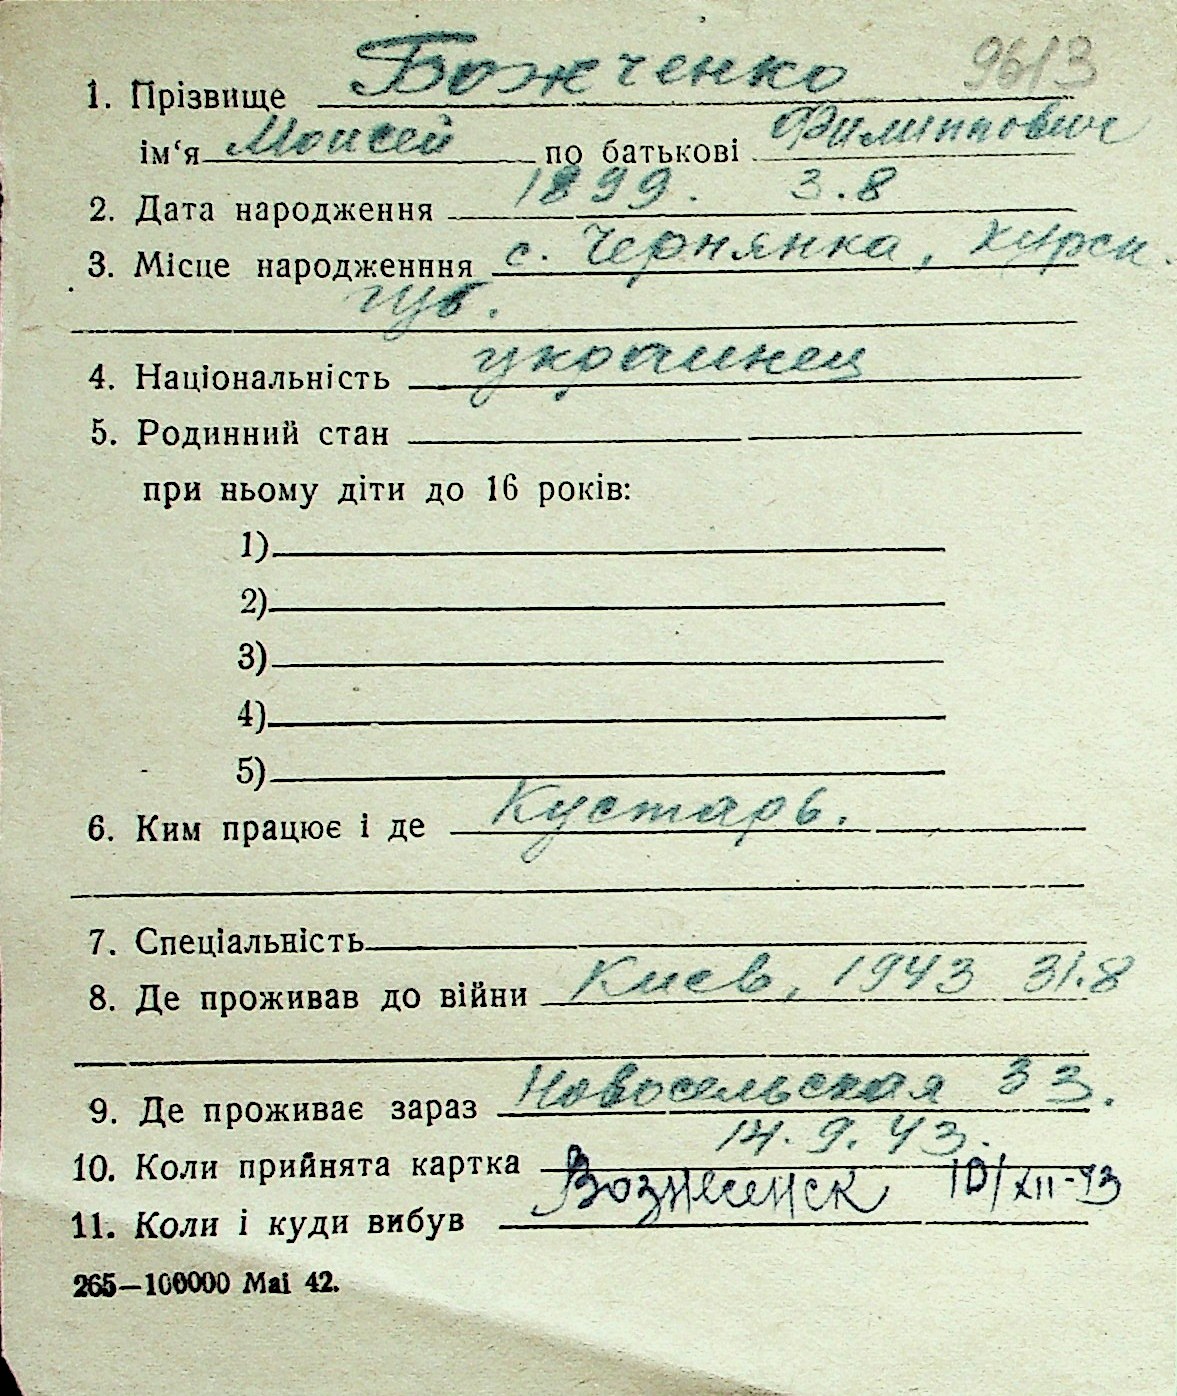 9613
1. Прізвище Божченко
ім‘я Моисей по батькові Филиппович
2. Дата народження 1899. 3.8
3. Місце народженння с. Чернянка, Курск.
губ.
4. Національність украинец
5. Родинний стан
при ньому діти до 16 років:
1)
2)
3)
4)
5)
6. Ким працює і де Кустарь.
7. Спеціальність
8. Де проживав до війни Киев, 1943 31.8
9. Де проживає зараз Новосельская 33.
10. Коли прийнята картка 14.9.43.
11. Коли і куди вибув Вознесенск 10/XII-43
265—100000 Mai 42.